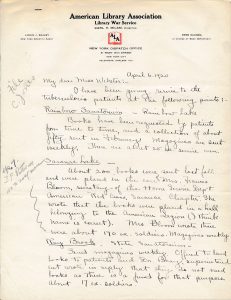 American Library Association
Library War Service
NEW YORK DISPATCH OFFICE
April 6, 1920
My dear Miss Webster:-
I have been giving service to the
tuberculous patients at the following points:-
Rainbow Sanatorium - Rainbow Lake
Books have been requested by patients
from time to time, and a collection of about
fifty sent in February. Magazines are sent
weekly. There are about 50 ex service men.
Saranac Lake -
About 200 books were sent last fall
and were placed in the care of Miss
Bloom, secretary of the Home Service Dept
American Red Cross, Saranac Chapter. She
wrote that the books were placed in a
belonging to the American Legion (I think
name is correct). Miss Bloom wrote there
were about 170 ex soldiers. Magazines weekly
Ray Brook - State Sanatorium -
Sent magazines weekly. Offered to send
books to patients and the
wrote in reply that they do not need
books as there is a fund for that purpose
About 17 ex-soldiers.